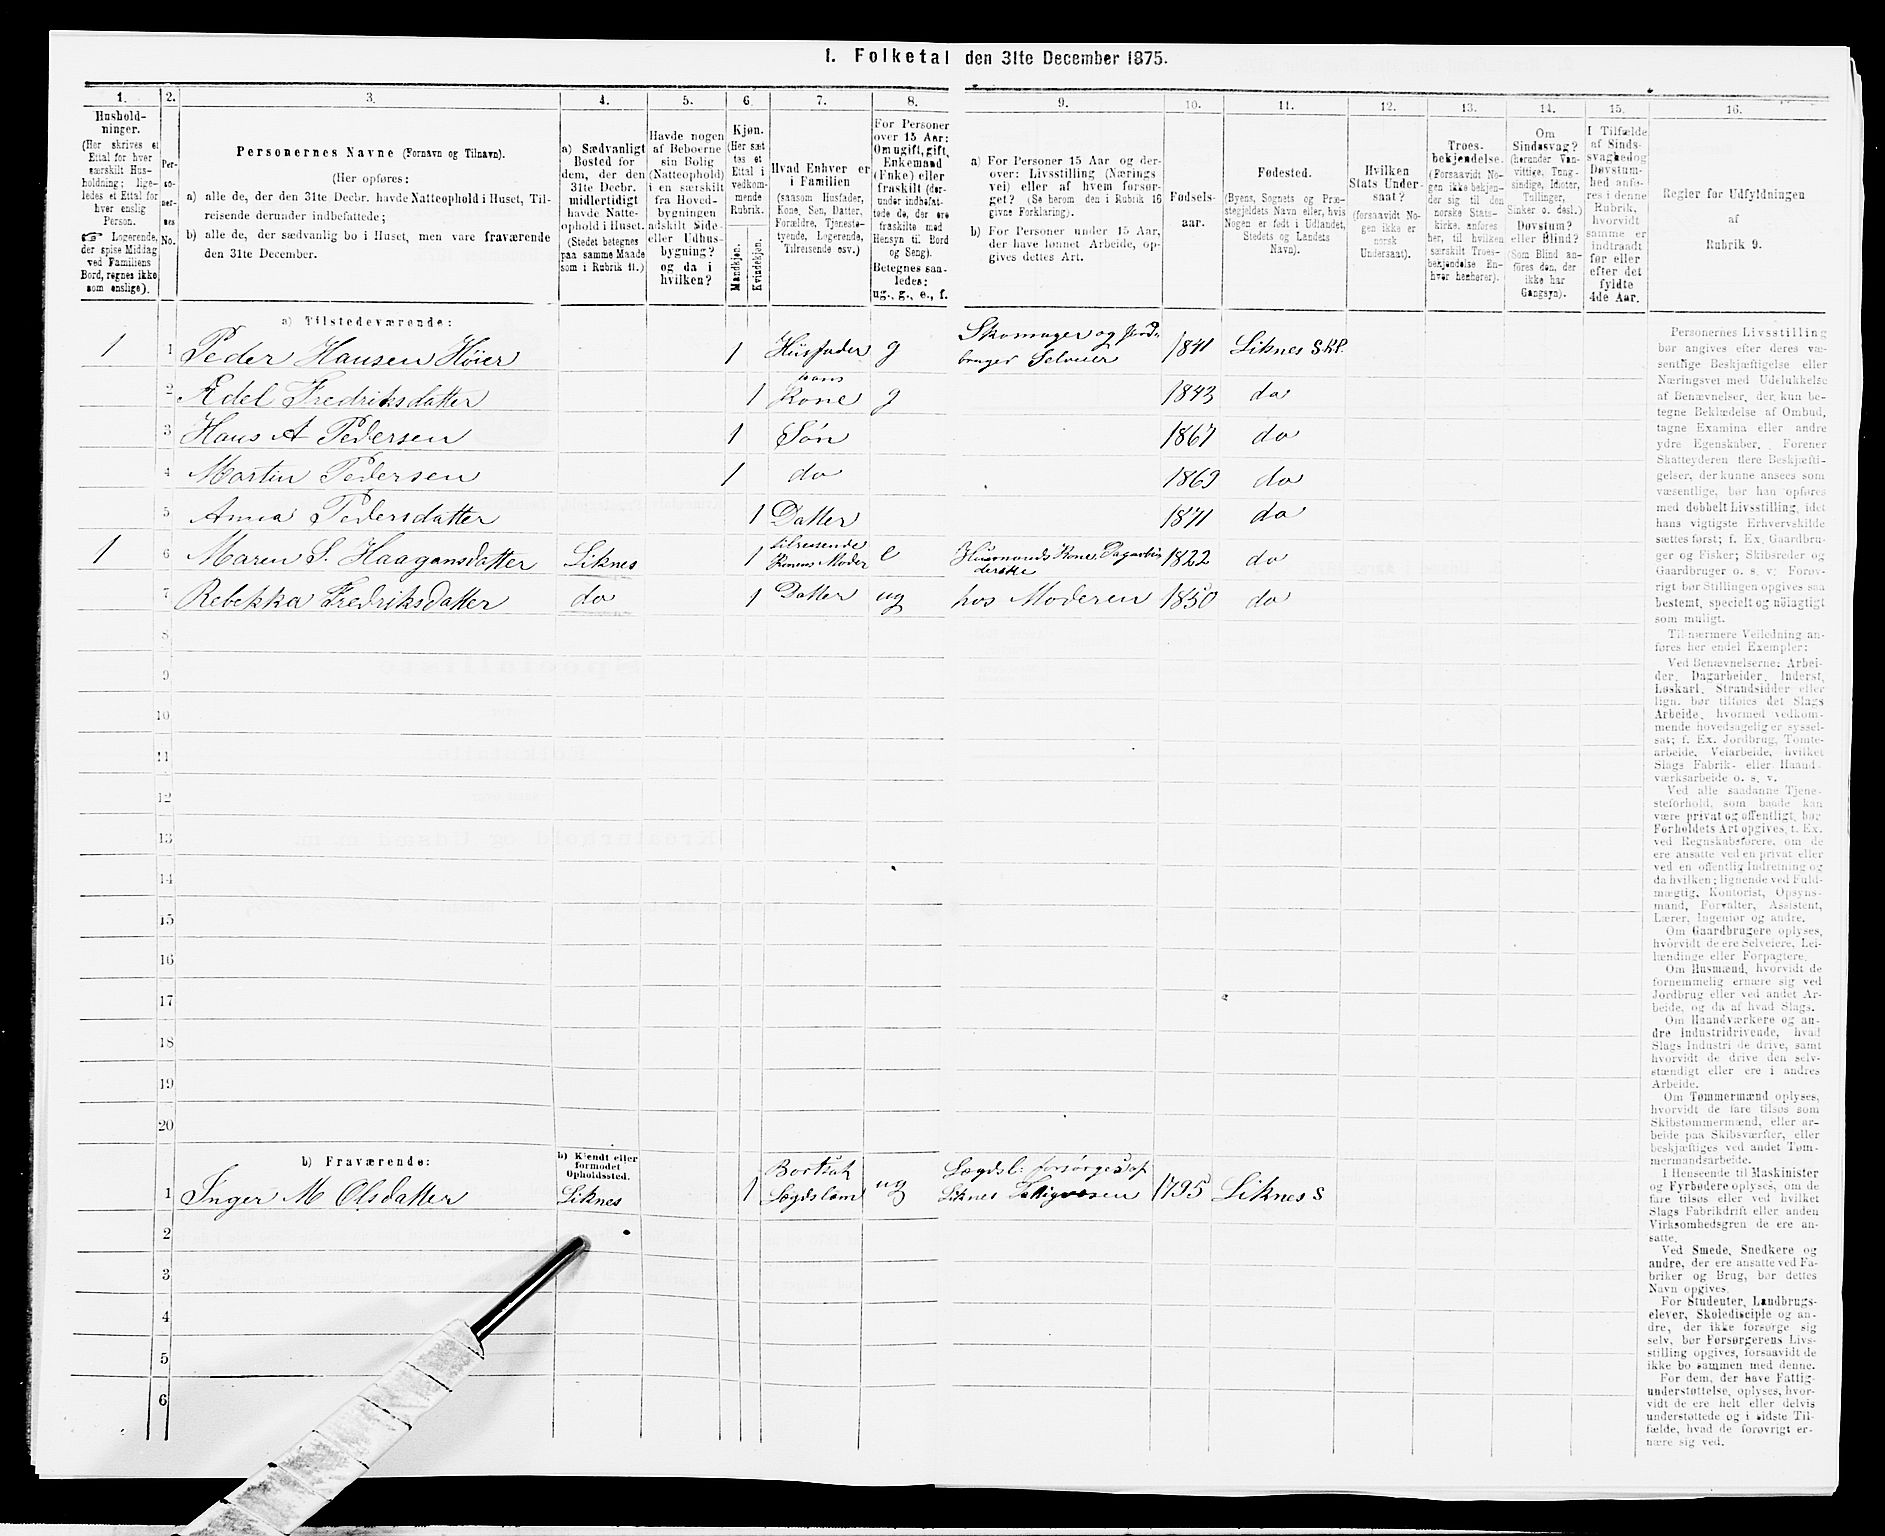 1. Folketal den 31te December 1875.
1.
Hushold-
ninger.
(Her skrives et
Ettal for hver
særskilt Hus-
holdning; lige-
ledes et Ettal for
hver enslig
Person.
☞ Logerende,
der spise Middag
ved Familiens
Bord, regnes ikke
som enslige).
2.
Per-
so-
ner-
nes
No.
3.
Personernes Navne (Fornavn og Tilnavn).
(Her opføres:
a) alle de, der den 31te Decbr. havde Natteophold i Huset, Til-
reisende derunder indbefattede;
b) alle de, der sædvanlig bo i Huset, men vare fraværende
den 31te December.
4.
a) Sædvanligt
Bosted for
dem, der den
31te Decbr.
midlertidigt
havde Natte-
ophold i Huset.
(Stedet betegnes
paa samme Maade
som i Rubrik 11.)
5.
Havde nogen
af Beboerne
sin Bolig
(Natteophold)
i en særskilt
fra Hoved-
bygningen
adskilt Side-
eller Udhus-
bygning?
og da i
hvilken?
6.
Kjøn.
(Her sæt-
tes et
Ettal i
vedkom-
mende
Rubrik.
Mandkjøn.
Kvindekjøn.
7.
Hvad Enhver er
i Familien
(saasom Husfader,
Kone, Søn, Datter,
Forældre, Tjeneste-
tyende, Logerende,
Tilreisende osv.)
8.
For Personer
over 15 Aar:
Om ugift, gift,
Enkemand
(Enke) eller
fraskilt (der-
under indbefat-
tede de, der ere
fraskilte med
Hensyn til Bord
og Seng).
Betegnes saa-
ledes:
ug., g., e., f.
9.
a) For Personer 15 Aar og der-
over: Livsstilling (Nærings-
vei) eller af hvem forsør-
get? (Se herom den i Rubrik 16
givne Forklaring).
b) For Personer under 15 Aar,
der have lønnet Arbeide, op-
gives dettes Art.
10.
Fødsels-
aar.
11.
Fødested.
(Byens, Sognets og Præ-
stegjeldets Navn eller, hvis
Nogen er født i Udlandet,
Stedets og Landets
Navn).
12.
Hvilken
Stats Under-
saat?
(forsaavidt No-
gen ikke er
norsk
Undersaat).
13.
Troes-
bekjendelse.
(Forsaavidt No-
gen ikke bekjen-
der sig til den
norske Stats-
kirke, anføres
her, til hvilken
særskilt Troes-
bekjendelse En-
hver henhører).
14.
Om
Sindssvag?
(herunder Van-
vittige, Tung-
sindige, Idioter,
Tullinger,
Sinker o. desl.)
Døvstum?
eller Blind?
(Som Blind an-
føres den, der
ikke har
Gangsyn).
15.
I Tilfælde
af Sinds-
svaghed og
Døvstum-
hed anfø-
res i denne
Rubrik,
hvorvidt
samme er
indtraadt
før eller
efter det
fyldte
4de Aar.
16.
Regler for Udfyldningen
af
Rubrik 9.
a) Tilstedeværende:
1 1 Peder Hansen Høier 1 Husfader g Skomager og Jord-
bruger Selveier 1841 Liknes S &P.
2 Ædel Fredriksdatter 1 hans
Kone g 1843 do
3 Hans A Pedersen 1 Søn 1867 do
4 Martin Pedersen 1 do 1869 do
5 Anna Pedersdatter 1 Datter 1871 do
1 6 Maren S. Haagensdatter Liknes 1 tilreisende
Konens Moder e Husmands Kone Dagarbei
derske 1822 do
7 Rebekka Fredriksdatter do 1 Datter ug hos Moderen 1850 do
8
9
10
11
12
13
14
15
16
17
18
19
20
b) Fraværende:
b) Kjendt eller
formodet
Opholdssted.
1 Inger M Olsdatter Liknes 1 Bortsat
Lægdslam ug Lægdsl: forsørges af
Liknes Fattigvæsen 1795 Liknes S
2
3
4
5
6
Personernes Livsstilling
bør angives efter deres væ-
sentlige Beskjæftigelse eller
Næringsvei med Udelukkelse
af Benævnelser, der kun be-
tegne Beklædelse af Ombud,
tagne Examina eller andre
ydre Egenskaber. Forener
Skatteyderen flere Beskjæfti-
gelser, der kunne ansees som
væsentlige, bør han opføres
med dobbelt Livsstilling, idet
hans vigtigste Erhvervskilde
sættes først; f. Ex. Gaardbru-
ger og Fisker; Skibsreder og
Gaardbruger o. s. v. Forøv-
rigt bør Stillingen opgives saa
bestemt, specielt og nøiagtigt
som muligt.
Til nærmere Veiledning an-
føres her endel Exempler:
Ved Benævnelserne: Arbei-
der, Dagarbeider, Inderst,
Løskarl, Strandsidder eller
lign. bør tilføies det Slags
Arbeide, hvormed vedkom-
mende hovedsagelig er syssel-
sat; f. Ex. Jordbrug, Tomte-
arbeide, Veiarbeide, hvilket
Slags Fabrik- eller Haand-
værksarbeide o. s. v.
Ved alle saadanne Tjene-
steforhold, som baade kan
være privat og offentligt, bør
Forholdets Art opgives, f. Ex.
ved Regnskabsførere, om de
ere ansatte ved en privat eller
ved en offentlig Indretning og
da hvilken; lignende ved Fuld-
mægtig, Kontorist, Opsyns-
mand, Forvalter, Assistent,
Lærer, Ingeniør og andre.
Om Gaardbrugere oplyses,
hvorvidt de ere Selveiere, Lei-
lændinge eller Forpagtere.
Om Husmænd, hvorvidt de
fornemmelig ernære sig ved
Jordbrug eller ved andet Ar-
beide, og da af hvad Slags.
Om Haandværkere og an-
dre Industridrivende, hvad
Slags Industri de drive, samt
hvorvidt de drive den selv-
stændigt eller ere i andres
Arbeide.
Om Tømmermænd oplyses,
hvorvidt de fare tilsøs som
Skibstømmermænd, eller ar-
beide paa Skibsværfter, eller
beskjæftiges ved andet Tøm-
mermandsarbeide.
I Henseende til Maskinister
og Fyrbødere oplyses, om de
fare tilsøs eller ved hvilket
Slags Fabrikdrift eller anden
Virksomhedsgren de ere an-
satte.
Ved Smede, Snedkere og
andre, der ere ansatte ved Fa-
briker og Brug, bør dettes
Navn opgives.
For Studenter, Landbrugs-
elever, Skoledisciple og an-
dre, der ikke forsørge sig
selv, bør Forsørgerens Livs-
stilling opgives, forsaavidt de
ikke bo sammen med denne.
For dem, der have Fattig-
understøttelse, oplyses, hvor-
vidt de ere helt eller delvis
understøttede og i sidste Til-
fælde, hvad de forøvrigt er-
nære sig ved.